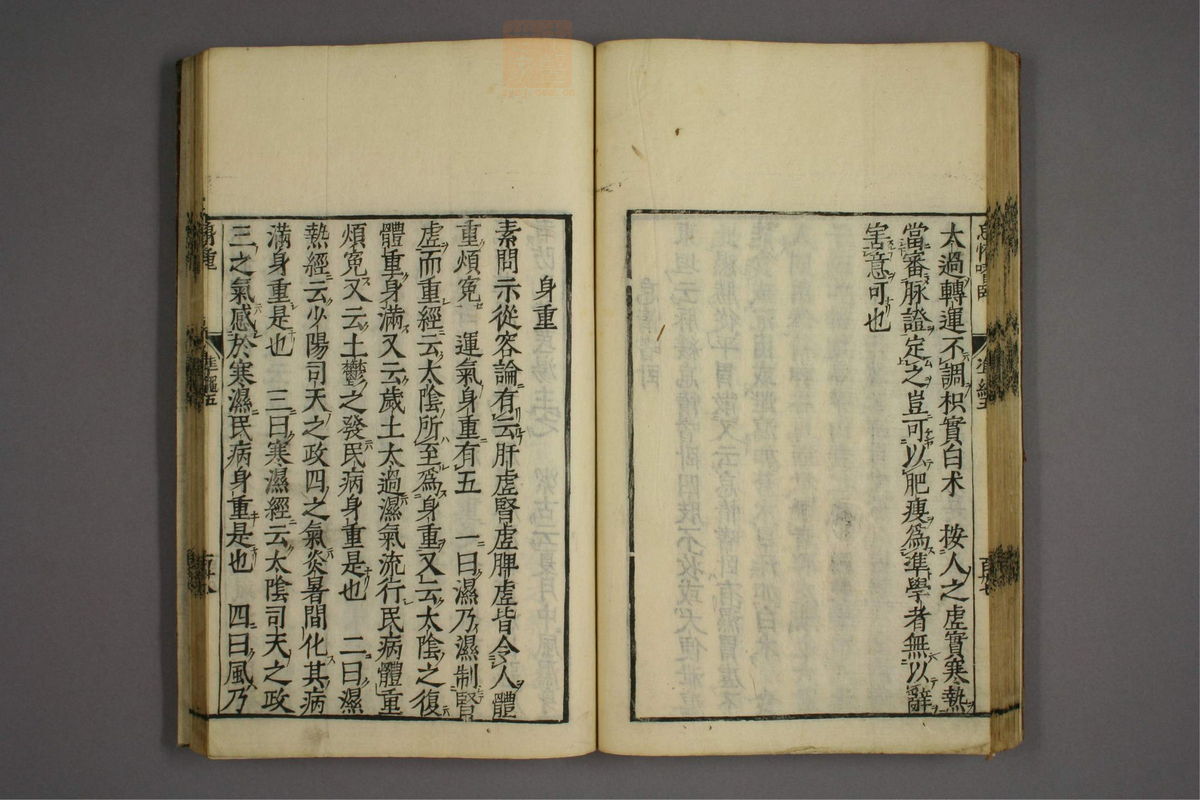 太過轉運不調枳實白朮　按人之虛實寒熱
當審脉證定之豈可以肥瘦爲準學者無以辭
害意可也
身重
素問示從容論有云肝虛腎虛脾虛皆令人體
重煩寃　運氣身重有五　一曰濕乃濕制腎
虛而重經云太陰所至爲身重又云太陰之復
體重身滿又云歲土太過濕氣流行民病體重
煩寃又云土鬱之發民病身重是也　二曰濕
熱經云少陽司天之政四之氣炎暑間化其病
滿身重是也　三曰寒濕經云太陰司天之政
三之氣感於寒濕民病身重是也　四曰風乃
身重
準繩五